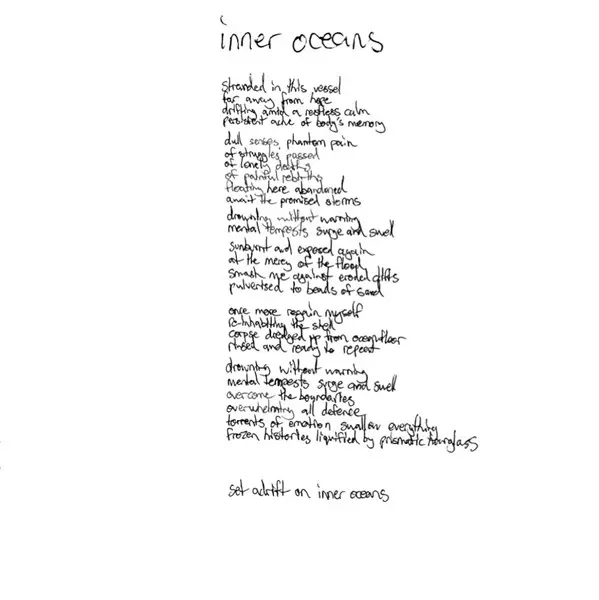 inner oceans
stranded in this vessel
far away from hope
drifting amid a restless calm
persistent ache of body's memory
dull senses, phantom pain
of struggles passed
of lonely deaths
of painful rebirths
floating here abandoned
await the promised storms
drowning without warning
mental tempests surge and swell
sunburnt and exposed again
at the mercy of the flood
smash me against eroded cliffs
pulverised to beads of sand
once more regain myself
re-inhabiting the shell
corpse dredged up from ocean floor
rinsed and ready to repeat
drowning without warning
mental tempests surge and swell
overcome the boundaries
overwhelming all defence
torrents of emotion swallow everything
frozen histories liquified by prismatic hourglass
set adrift on inner oceans